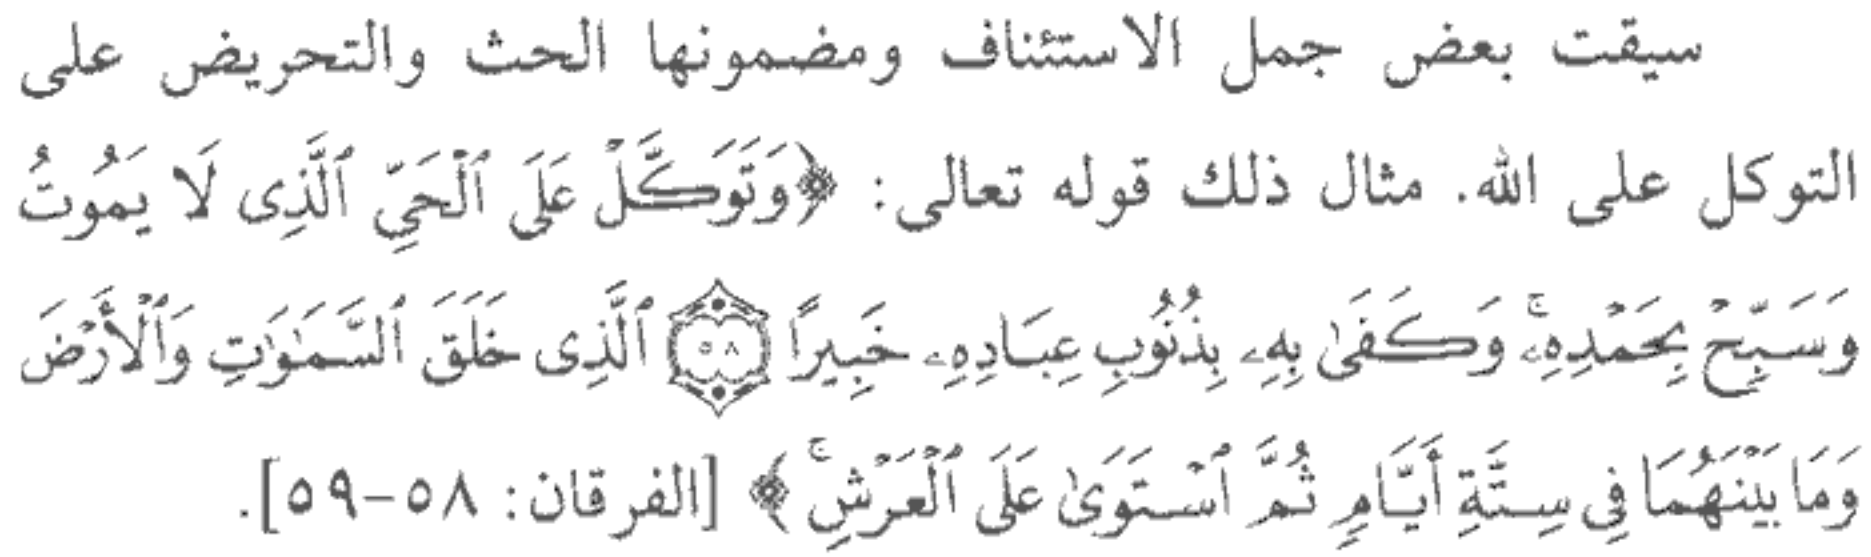 سيقت بعض جمل الاستئناف ومضمونها الحث والتحريض على
التوكل على الله. مثال ذلك قوله تعالى: ﴿وَتَوَكَّلْ عَلَى ٱلْحَيِّ ٱلَّذِى لَا يَمُوتُ
وَسَبِّحْ بِحَمْدِهِۦۚ وَكَفَىٰ بِهِۦ بِذُنُوبِ عِبَادِهِۦ خَبِيرًا ۝٥٨ ٱلَّذِى خَلَقَ ٱلسَّمَـٰوَٰتِ وَٱلْأَرْضَ
وَمَا بَيْنَهُمَا فِى سِتَّةِ أَيَّامٍ ثُمَّ ٱسْتَوَىٰ عَلَى ٱلْعَرْشِۚ﴾ [الفرقان: ٥٨-٥٩].